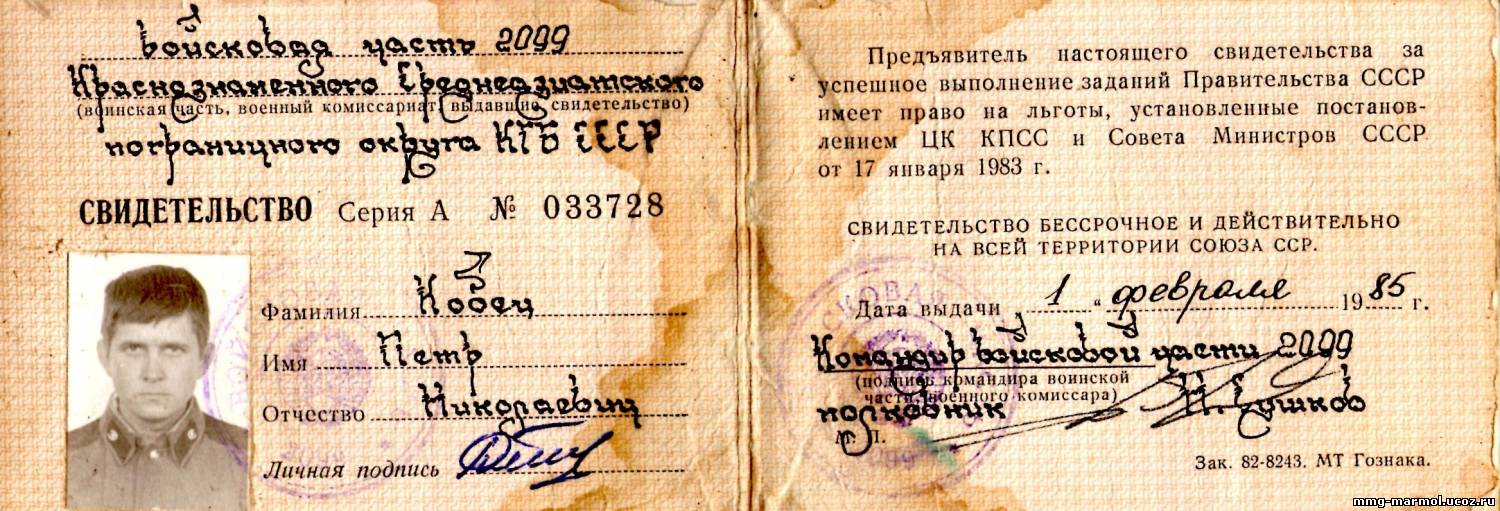 войсковая часть 2099
Краснознаменного Среднеазиатского
(воинская часть, военный комиссариат, выдавший свидетельство)
пограничного округа КГБ СССР
СВИДЕТЕЛЬСТВО Серия А № 033728
Фамилия Кобец
Имя Петр
Отчество Николаевич
Личная подпись
Предъявитель настоящего свидетельства за
успешное выполнение заданий Правительства СССР
имеет право на льготы, установленные постанов-
лением ЦК КПСС и Совета Министров СССР
от 17 января 1983 г.
СВИДЕТЕЛЬСТВО БЕССРОЧНОЕ И ДЕЙСТВИТЕЛЬНО
НА ВСЕЙ ТЕРРИТОРИИ СОЮЗА ССР.
Дата выдачи „ 1 “ февраля 1985 г.
Командир войсковой части 2099
(подпись командира воинской
части, военного комиссара)
полковник
М. П.
Зак. 82-8243. МТ Гознака.
mmg-marmol.ucoz.ru